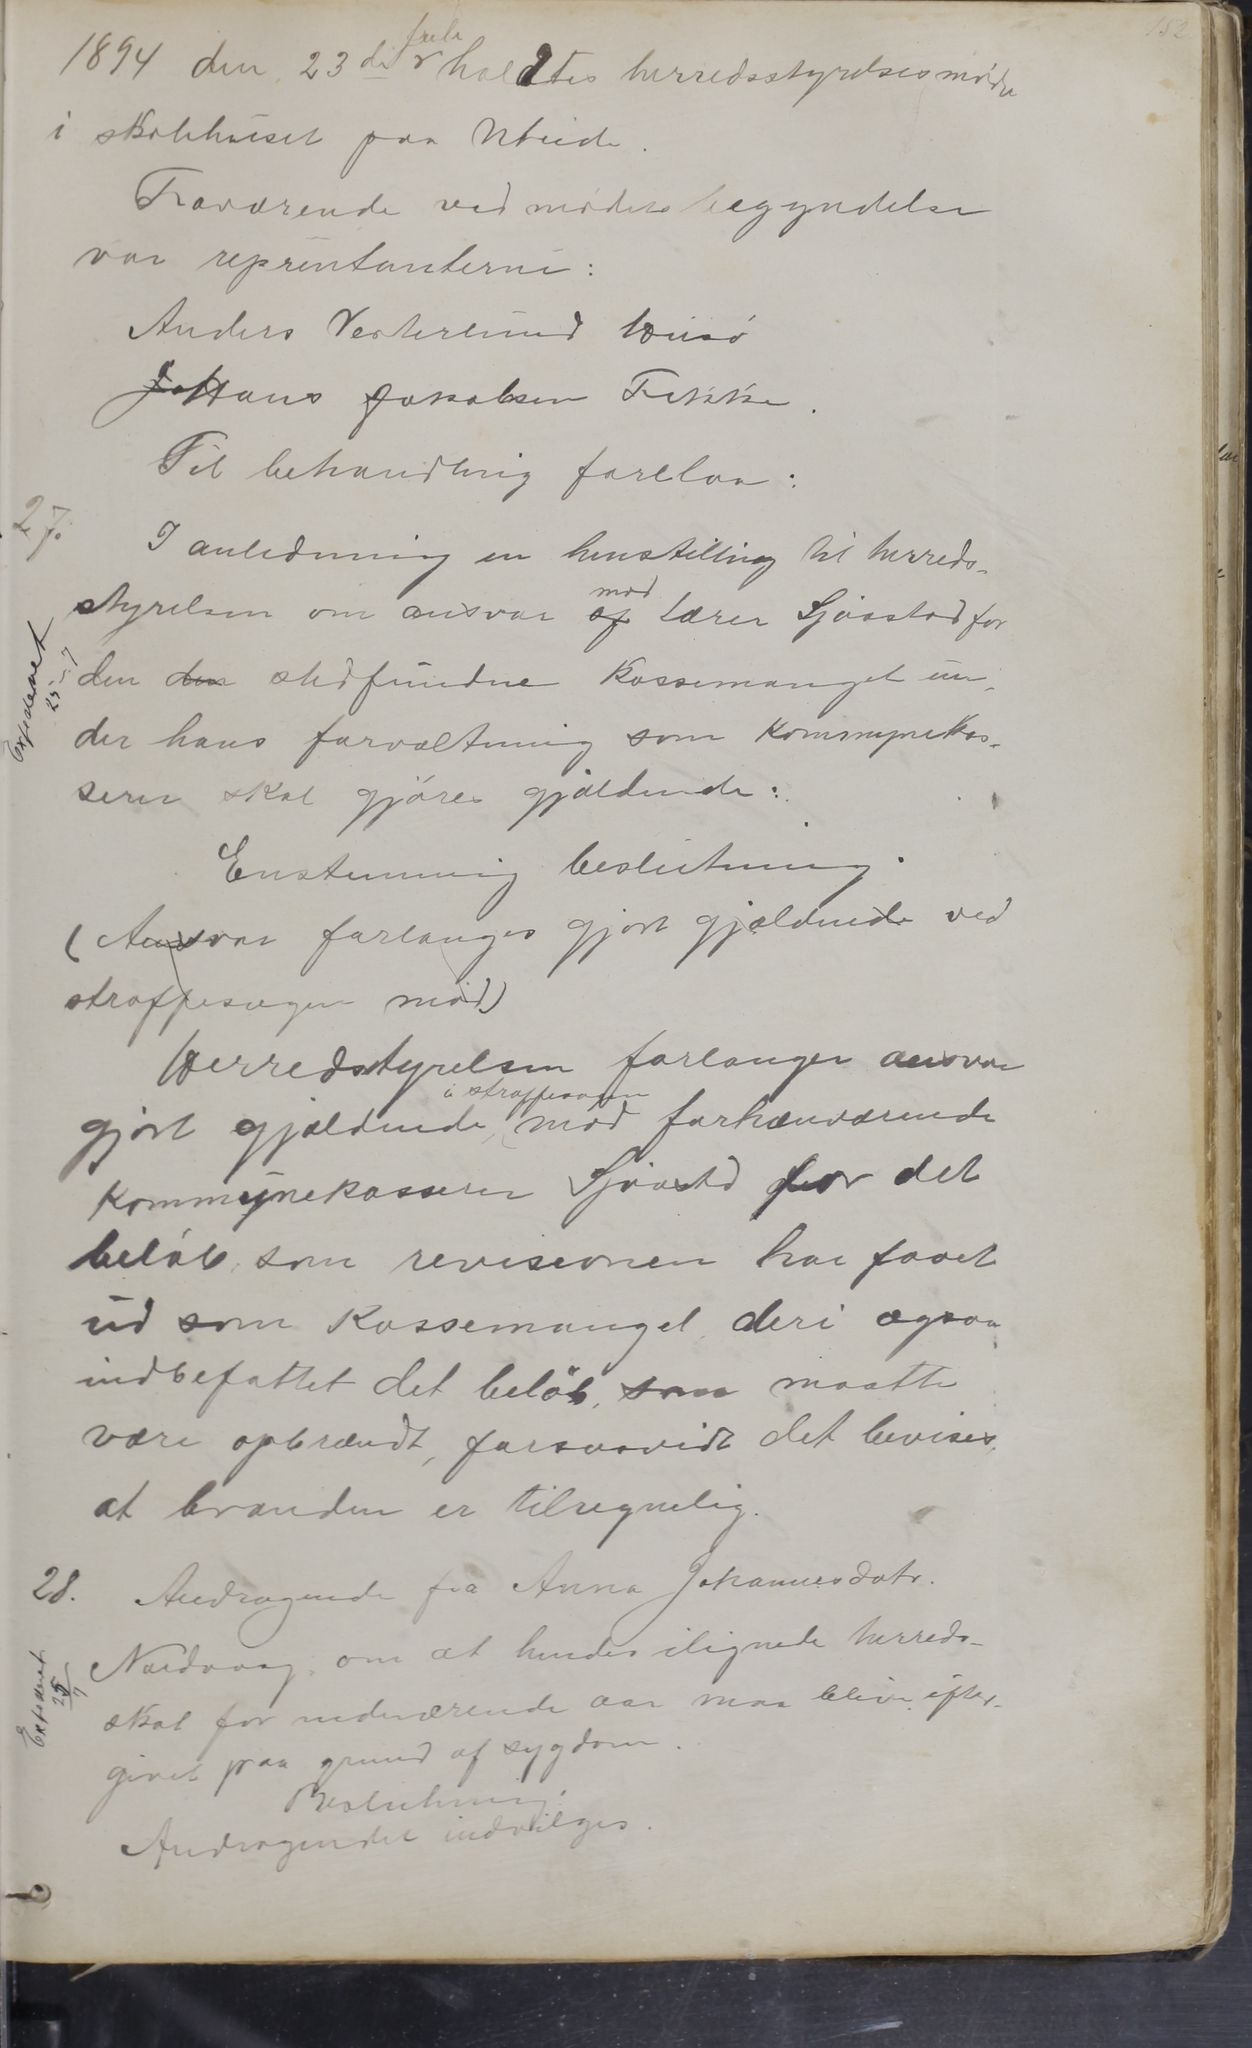 152
1894 den 23de juli holdtes herredsstyrelsesmöde
i skolehuset paa Uteide.
Fraværende ved mödets begyndelse
var reprentanterne:
Anders Vesterlund
Hans Jakobsen Fikke.
Til behandling forelaa:
27.
I anledning en henstilling til herreds-
styrelsen om ansvar mod lærer Sjåstad for
den stedfundne Kassemangel un-
der hans forvaltning som Kommynekas-
serer skal gjöres gjældende:
Expederet
25-7
Enstemmig beslutning.
(Ansvar forlanges gjort gjældende ved
straffesagen mod)
Herredsstyrelsen forlanger ansvar
gjort gjældende, i straffesagen mod forhenværende
Kommynekasserer Sjåstd for det
belöb, som revisionen har faaet
ud som Kassemangel, deri ogsaa
indbefattet det belöb, som maatte
være opbrændt, forsaavidt det bevises,
at branden er tilregnelig.
28. Andragende fra Anna Johannesdatr.
Nordvaag, om at hendes ilignede herreds-
skat for nedværende aar maa blive efter-
givet paa grund af sygdom.
Expederet
25/7
Beslutning:
Andragendet indvilges.